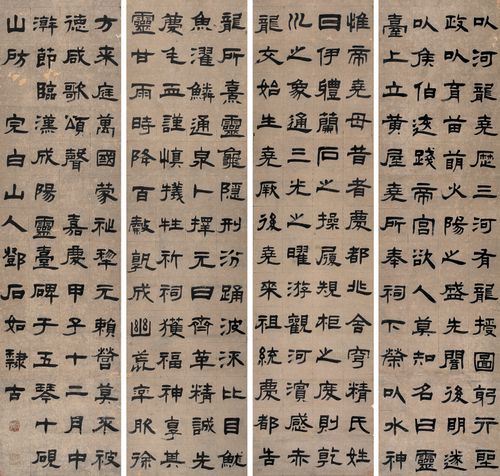 惟帝堯母昔者慶都兆舍穹精氏姓
曰伊體蘭石之操履規柜之度則乾
川之象通三光之曜游觀河濱感赤
龍交始生堯厥後堯來祖統慶都告
以河龍堯歷三河有龍授圖躬行聖
政以育苗萌火陽之盛先闇後明遂
以侯伯踐帝宮欲人莫知名曰靈
臺上立黃屋堯所奉祠下營以水神
龍所憙靈龜隱形沴踊波流比目鮌
魚濯鱗通泉卜擇元日齊革精誠先
薦毛血謹慎犧牲祈祠獲福神享其
靈甘雨時降百穀孰成幽荒率服徐
方來庭萬國蒙祉黎元賴營莫不被
德咸歌頌聲 嘉慶甲子十二月中
澣節臨漢成陽靈臺碑于五琴十硯
山房 完白山人鄧石如隸古